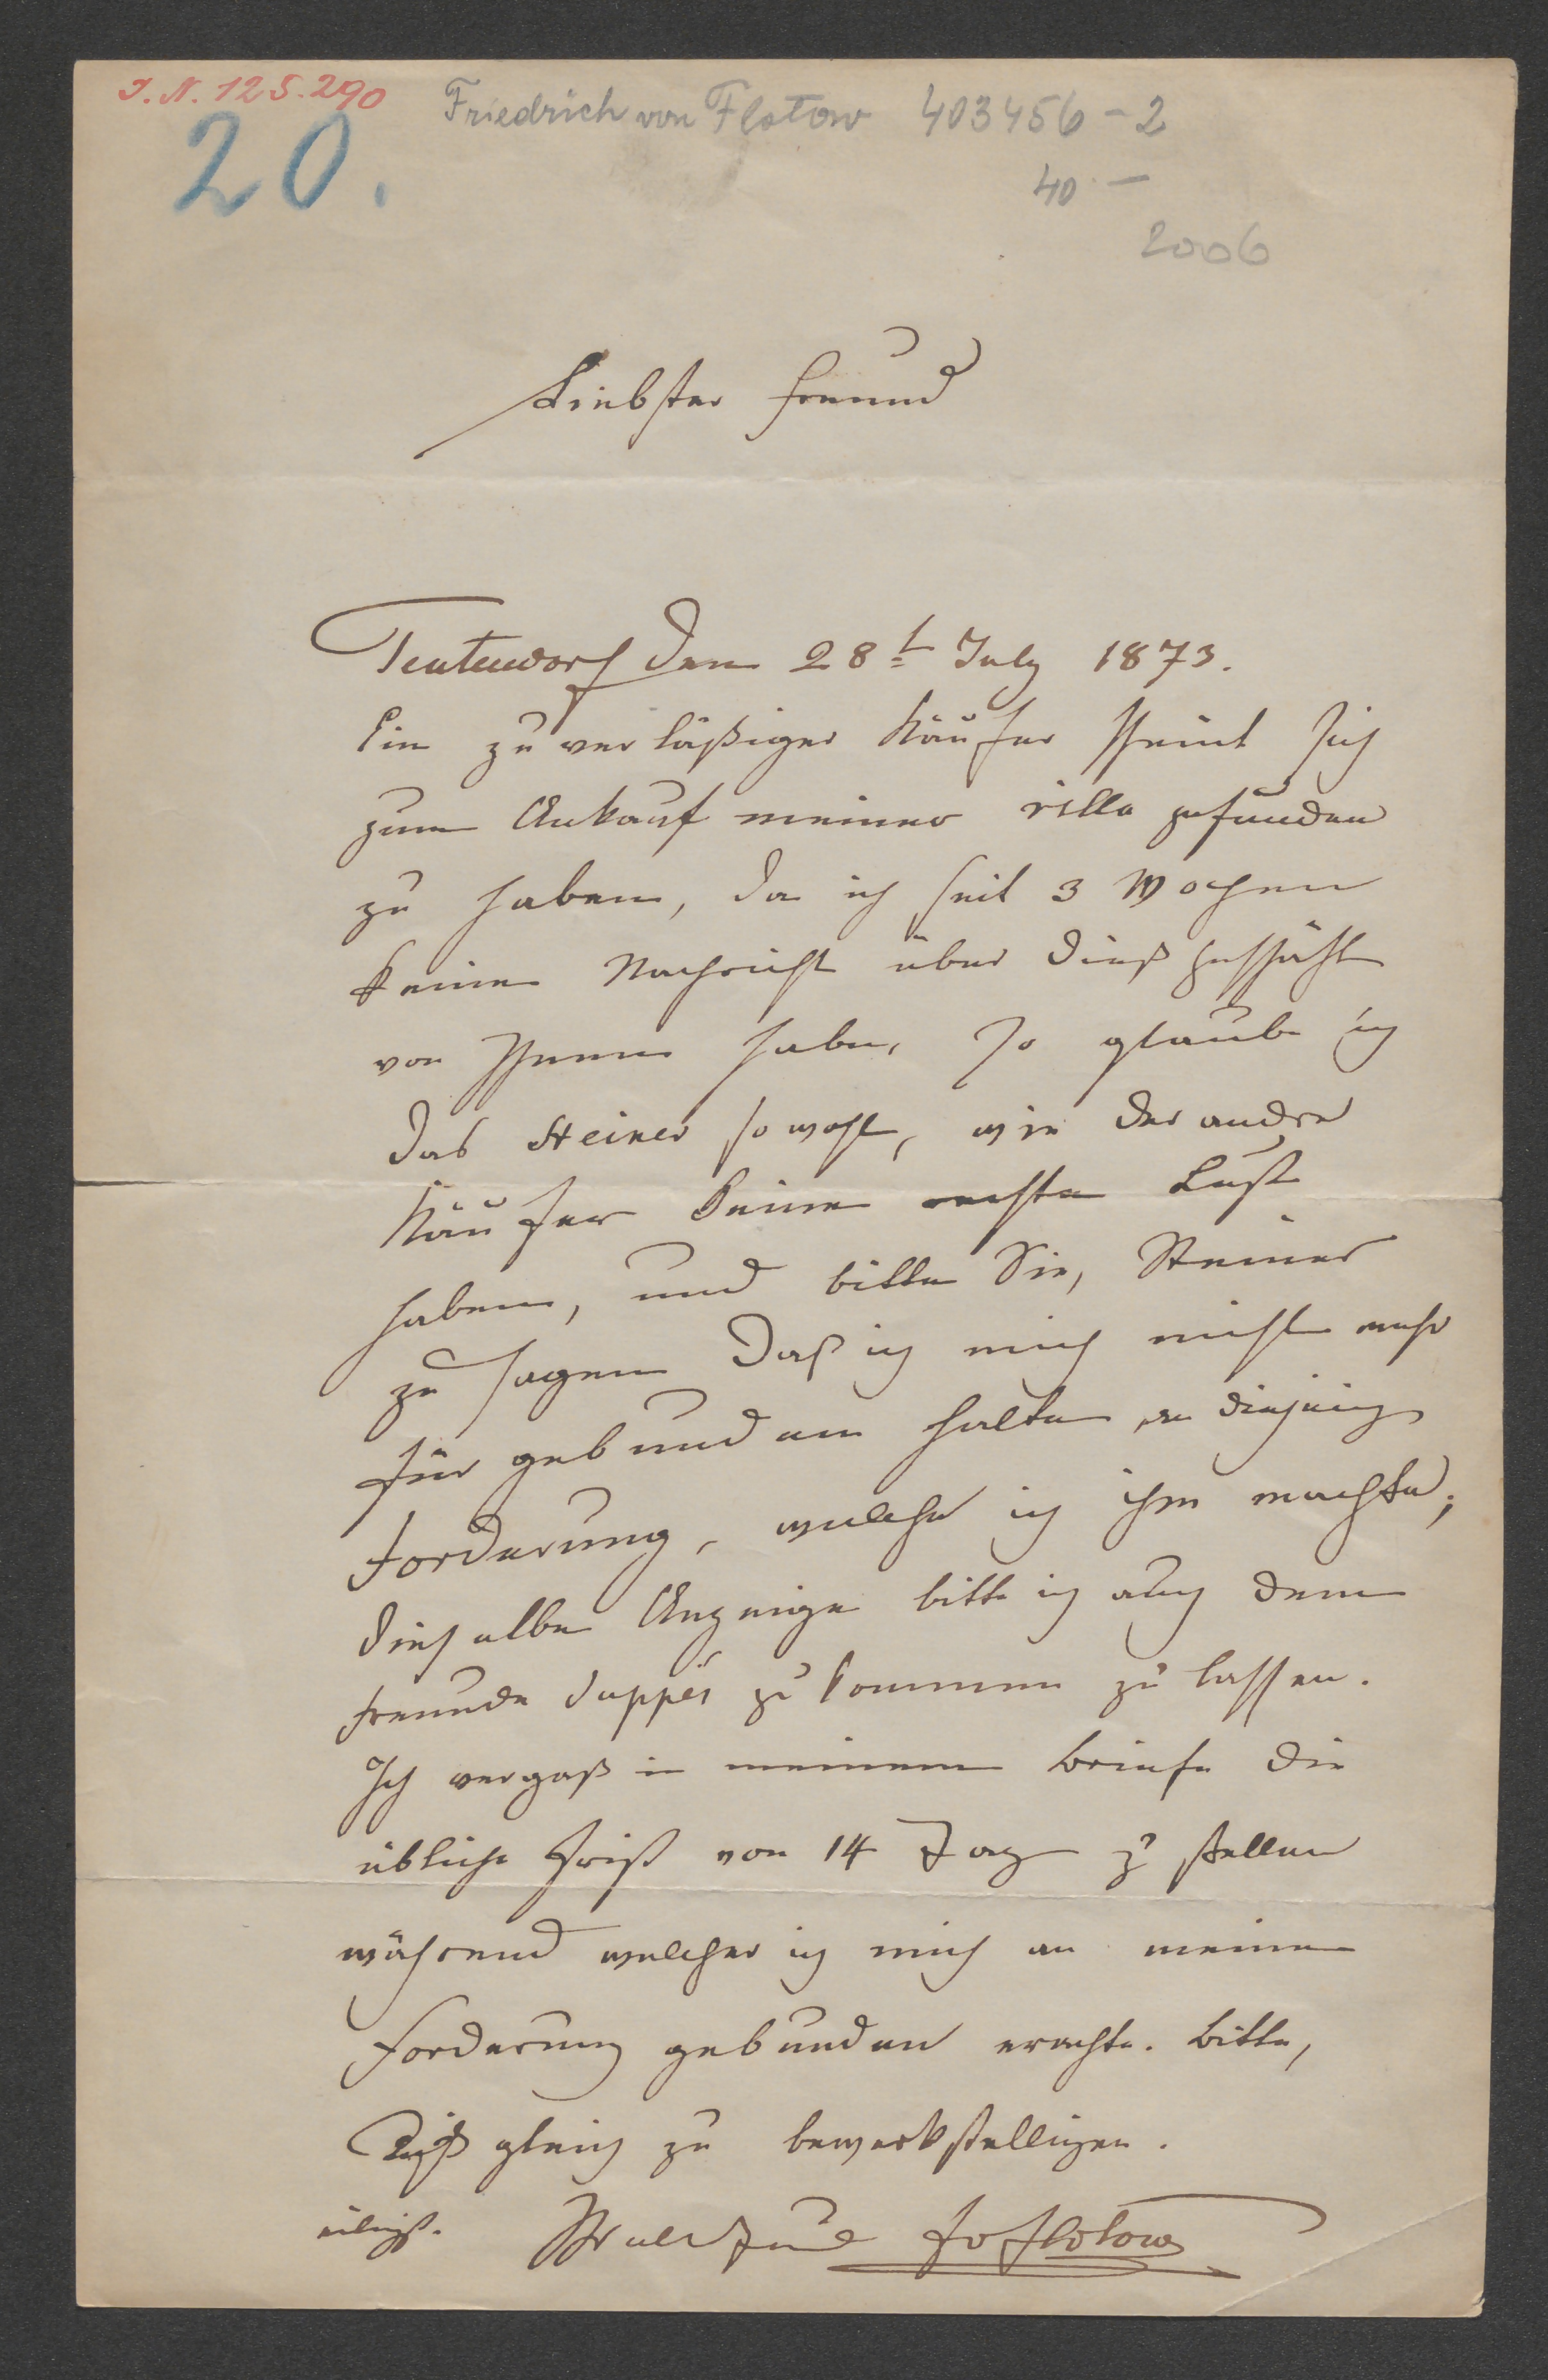 J. N. 125.290
20.
Friedrich von Flotow 403456-2
40 –
2006
Liebster Freund
Teutendorf den 28t July 1873.
Ein zuverläßiger Käufer scheint sich
zum Ankauf meiner Villa gefunden
zu haben, da ich seit 3 Wochen
keine Nachricht über dieß Geschäft
von Ihnen habe, so glaube ich
das Steiner sowohl, wie der andre
Käufer keine rechte Lust
haben, und bitte Sie, Steiner
zu sagen daß ich mich nicht mehr
für gebunden halte an diejenige
Forderung, welche ich ihm machte;
dieselbe Anzeige bitte ich auch dem
Freunde Suppés zukommen zu lassen.
Ich vergaß in meinem Briefe die
übliche Frist von 14 Tage zu stellen
während welcher ich mich an meine
Forderung gebunden erachte. Bitte,
dieß gleich zu bewerkstelligen.
eiligst. Ihr alter Freund Fr v Flotow